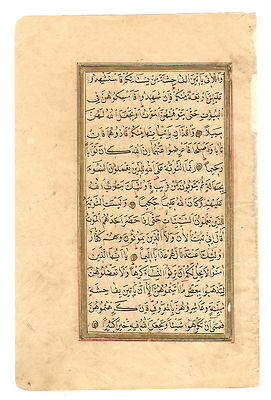 واللاتي يأتين الفاحشة من نسائكم فاستشهدوا
عليهن اربعة منكم فان شهدوا فامسكوهن في
البيوت حتى يتوفيهن الموت او يجعل الله لهن
سبيلا واللذان يأتيانها منكم فاذوهما فان
تابا واصلحا فاعرضوا عنهما ان الله كان توابا
رحيما انما التوبة على الله للذين يعملون السوء
بجهالة ثم يتوبون من قريب فاولئك يتوب الله
عليهم وكان الله عليما حكيما وليست التوبة
للذين يعملون السيئات حتى اذا حضر احدهم الموت
قال اني تبت الان ولا الذين يموتون وهم كفار
اولئك اعتدنا لهم عذابا اليما يا ايها الذين
امنوا لا يحل لكم ان ترثوا النساء كرها ولا تعضلوهن
لتذهبوا ببعض ما اتيتموهن الا ان يأتين بفاحشة
مبينة وعاشروهن بالمعروف فان كرهتموهن
فعسى ان تكرهوا شيئا ويجعل الله فيه خيرا كثيرا